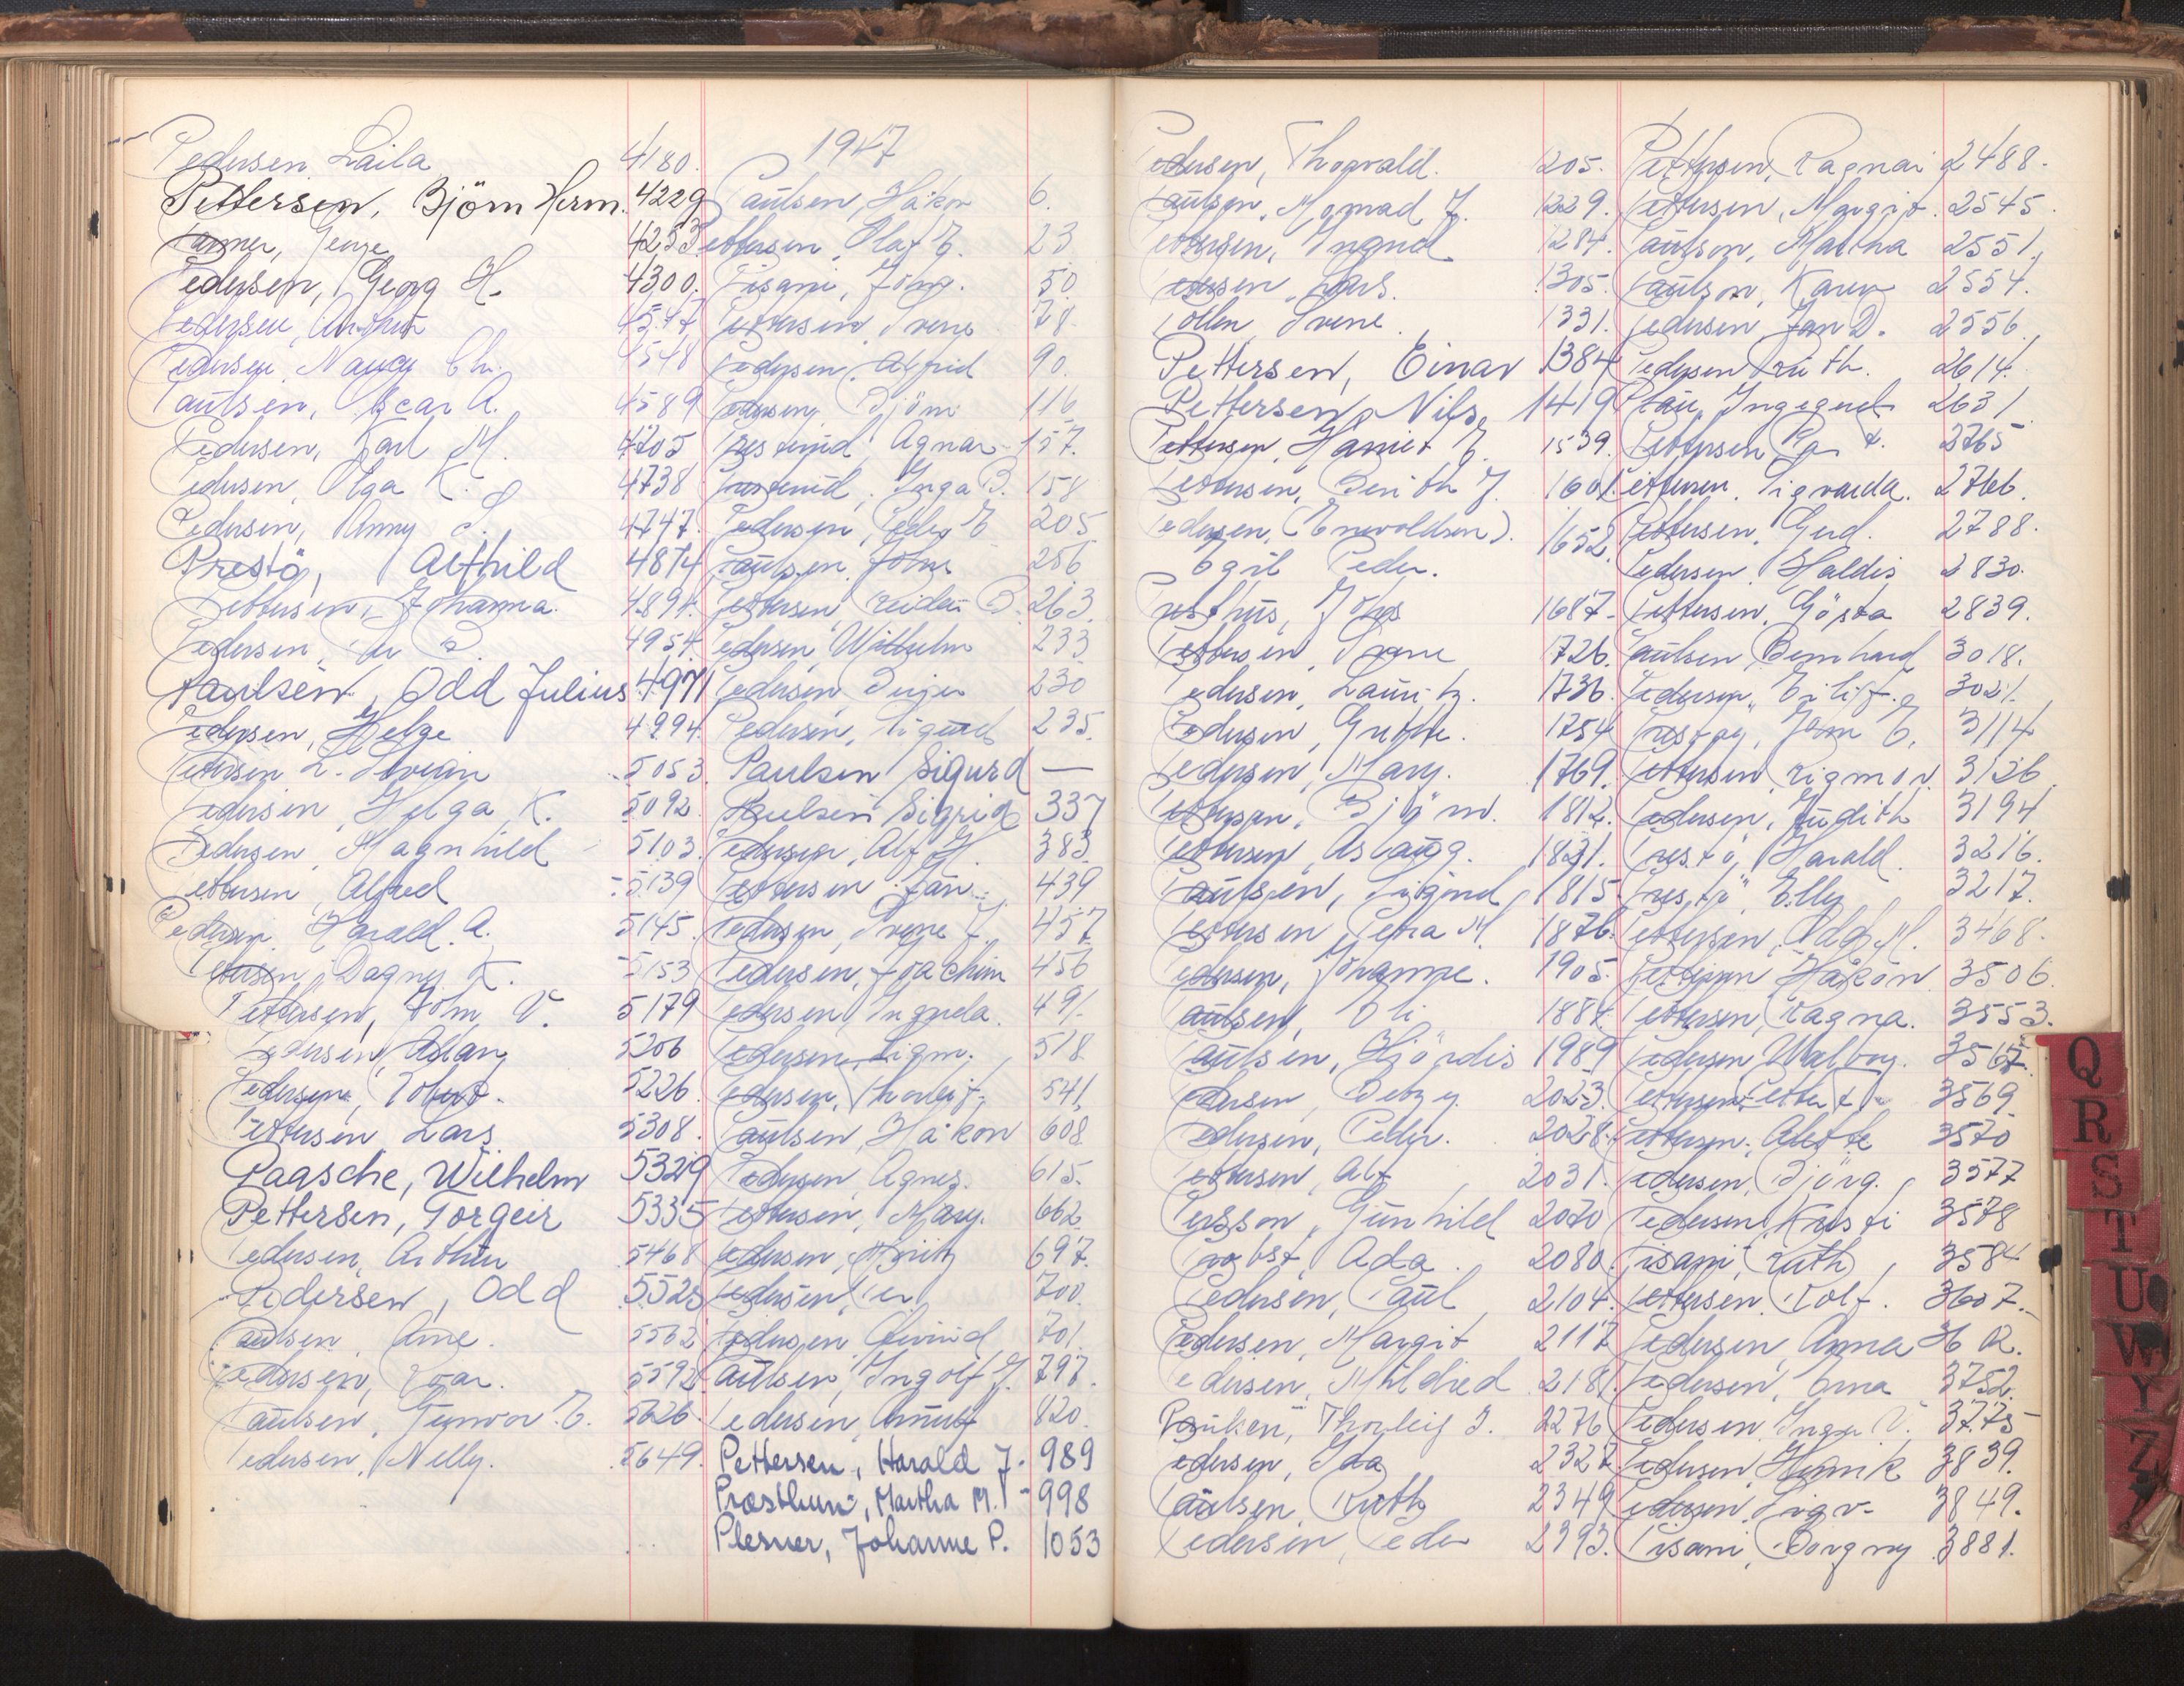 Pedersen, Laila 4180.
Pettersen, Björn Herm. 4229
4253
Pedersen, Georg H. 4300.
Pedersen, Arthur 4547
Pedersen, Nancy Chr. 4548
Paulsen, Oscar A. 4589
Pedersen, Karl M. 4705
Pedersen, Olga K. 4738
Pedersen, Anny S. 4747.
Prestö, Alfhild 4874
Pettersen, Johanna. 4894.
Pedersen, 4954
Paulsen, Odd Julius 4971
Pedersen, Helge 4994
Pettersen L. Vivian 5053
Pedersen, Helga K. 5092
Pedersen, Magnhild 5103.
Pettersen, Alfred 5139
Pedersen, Harald A. 5145.
Pettersen, Dagny K. 5153
Pettersen, John V. 5179
Pedersen, 5206
Pedersen, Robert. 5226.
Pettersen, Lars 5308.
Paasche, Wilhelm 5329
Pettersen, Torgeir 5335
Pedersen, Arthur 5468
Pedersen, Odd 5525
Paulsen, Arne. 5562
Pedersen, Roar. 5592
Paulsen, Gunvor E. 5626.
Pedersen, Nelly. 5649.
1947
Paulsen, Håkon 6.
Pettersen, Olaf E. 23
Pisani, 50
Pettersen, Svene 78
Pedersen, Alfrid 90.
Pedersen, Björn 116
Presterud, Agnar 157.
Presterud, Inga B. 158
Pedersen, Peder E 205
Paulsen, John 256
Pettersen, Reidar B. 263
Pedersen, Wilhelm 233
Pedersen, Birger 230
Pedersen, Sigurd 235.
Paulsen Sigurd —
Paulsen Sigrid 337
Pedersen, Alf H. 383
Pettersen, Jan 439
Pedersen, Irene J. 457
Pedersen, Joachim 456
Pedersen, Ingrida 491.
Pedersen, Sigm. 518
Pedersen, Thorleif. 541.
Paulsen, Håkon 608
Pedersen, Agnes. 615.
Pettersen, Mary. 662
Pedersen, 697.
Pedersen, Per 700
Pedersen, Eivind 701
Paulsen, Ingolf J. 797.
Pedersen, 820.
Pettersen, Harald J. - 989
Præsthun, Martha M. - 998
Plesner, Johanne P. 1053
Pedersen, Thorvald. 1205.
Paulsen, J. 1229.
Pettersen, Ingrid 1284.
Pedersen, Lars. 1305.
Pollen, Svene. 1331.
Pettersen, Einar 1384
Pettersen, Nils 1419
Pettersen, Harriet E. 1539.
Pettersen, Berith J. 1601.
Pedersen, (Enevoldsen). 1652.
Egil Peder.
Presthus, Johs 1687.
Pettersen, 1726.
Pedersen, Lauritz. 1736.
Pedersen, Grethe. 1754
Pedersen, Mary. 1769.
Pettersen, Björn. 1812.
Pettersen, Aslaug. 1831.
Paulsen, Sigurd 1815
Pettersen, Petra M. 1876.
Pedersen, Johanne. 1905.
Paulsen, Oli 1884.
Paulsen, Hjördis 1989
Pedersen, Betzy. 2023.
Pedersen, Peder. 2028.
Pettersen, Alf 2031.
Persson, Gunhild 2070
Probst, Ada. 2080.
Pedersen, Paul 2104.
Pedersen, Margit 2117
Pedersen, Mildred 2181.
Thorleif J. 2276
Pedersen, Ida 2327.
Paulsen, Ruth 2349
Pedersen, Peder 2393.
Pettersen, Ragnar 2488.
Pettersen, Margit. 2545.
Paulson, Martha 2551.
Paulson, Karen 2554.
Pedersen, Jan D. 2556.
Pedersen, Ruth. 2614.
Plau, Ingegerd 2631
Pettersen, 2765
Pettersen, Sigvarda. 2766.
Pettersen, Gerd. 2788.
Pedersen, Haldis 2830.
Pettersen, Gösta 2839.
Paulsen, Bernhard 3018.
Pedersen, Eilif. 3021.
Prestöy, John E. 3114
Pettersen, Rigmor. 3126
Pedersen, Judith 3194
Prestö, Harald. 3216.
Prestö, Elly 3217.
Pettersen, Odd M. 3468.
Pettersen, Håkon 3506.
Pettersen, Ragna. 3553.
Pedersen, Walborg. 3567.
Pettersen, 3569
Pettersen, 3570
Pedersen, Bjørg. 3577
Pedersen, Kirsti 3578
Pisani, Ruth 3584
Pettersen, Rolf. 3607.
Pedersen, Anna H R.
Pedersen, Erna 3752.
Pedersen, Inga V. 3775
Pedersen, Henrik 3839.
Pedersen, Sigv. 3849.
Pisani, Borgny 3881.
Q
R
S
T
U
W
Y
Z